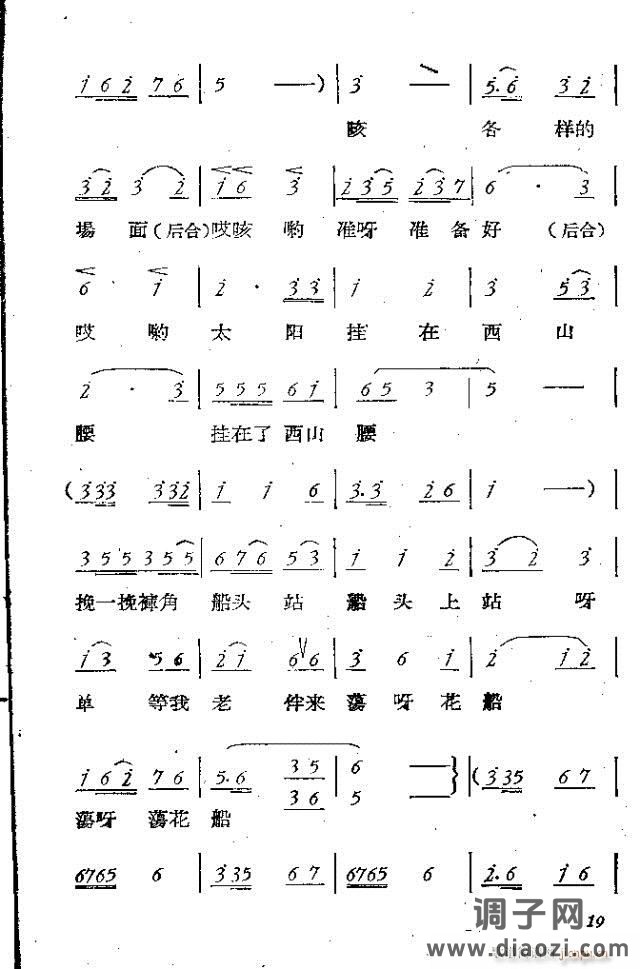 i 6 i 2 7 6 | 5 —— ) | 3 | 5·6 3 2 |
咳 各 样的
3 2 3 2 | i 6 3 | 2 3 5 2 3 7 | 6 · 3 |
場 面(后合)哎咳 哟 准呀 准 备 好 (后合)
6 i | 2 · 3 3 | i 2 | 3 5 3 |
哎 哟 太 阳 挂 在 西 山
2 · 3 | 5 5 5 6 i | 6 5 3 | 5 —— |
腰 挂在了 西山 腰
(3 3 3 3 3 2 | i i 6 | 3·3 2 6 | i —— )
3 5 5 3 5 5 | 6 7 6 5 3 | i i 2 | 3 2 3 |
挽一挽褲角 船头 站 船 头 上 站 呀
i 3 5 6 | 2 i 6 6 | 3 6 i | 2 i 2 |
单 等我 老 伴来 蕩 呀 花 船
i 6 i 2 7 6 | 5·6 3 5 | 6 —— } ( 3 3 5 6 7 |
3 6 | 5 ——
蕩呀 蕩花 船
6765 6 | 3 3 5 6 7 | 6765 6 | 2·6 i 6 |
调子网
www.diaozi.com
19